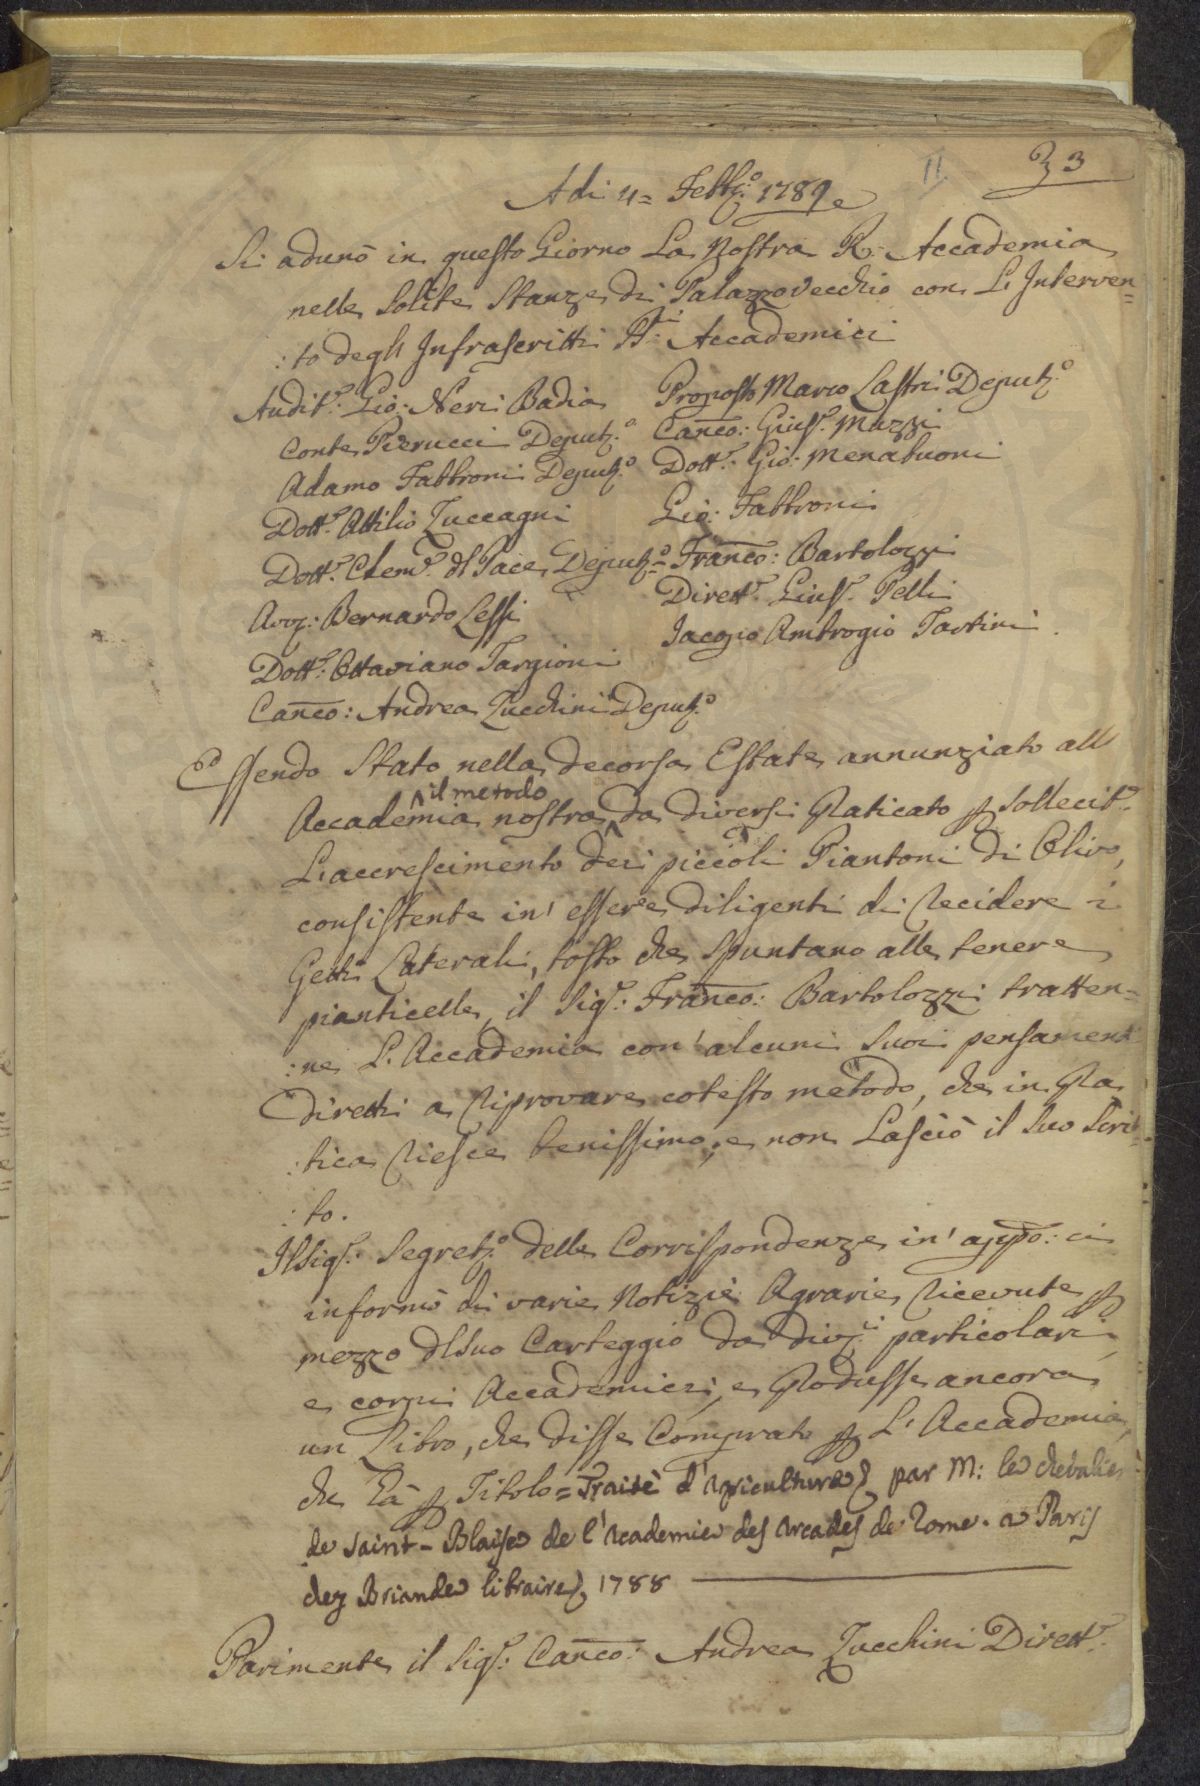 II. 33
Adi 4= Febb:º 1789
Si adunò in questo Giorno La Nostra R. Accademia
nelle Solite Stanze di Palazzo Vecchio con L'Interven=
:to degli Infrascritti SS:ri Accademici
Audit:e Gio: Neri Badia Proposto Marco Lastri Deput:º
Conte Pierucci Deput:º Canco: Gius:e Muzzi
Adamo Fabbroni Deput:º Dott:e Gio: Menabuoni
Dott:e Attilio Zuccagni Gio: Fabbroni
Dott:e Clem:e dl Pace, Deput:º= Franco: Bartolozzi
Avv: Bernardo Lessi Dirett:e Gius:e Pelli
Dott:e Ottaviano Targioni Jacopo Ambrogio Tartini
Canco: Andrea Zucchini Deput:º
Essendo Stato nella decorsa Estate annunziato all'
Accademia nostra il metodo da diversi Praticato p Sollecit:e
L'accrescimento dei piccoli Piantoni di Olivo,
consistente in' essere diligenti di Recidere i
Getti Laterali, tosto che Spuntano alle tenere
pianticelle, il Sig:e Franco: Bartolozzi tratten=
:ne L'Accademia con' alcuni Suoi pensamenti
Diretti a Riprovare cotesto metodo, che in Pra
:tica Riesce benissimo; e non Lasciò il Suo Scrit
:to.
Il Sig:e Segret:º delle Corrispondenze in' appo: ci
informò di varie Notizie Agrarie, Ricevute p
mezzo dl Suo Carteggio da Div:i particolari,
e corpi Accademici, e Produsse ancora
un Libro, che disse Comprato p L'Accademia,
che ha p Titolo= Traitè d'Agriculture, par M: le chevalier
de Saint-Blaise de l'Academie des Arcades de Rome. a Paris
chez Briande libraire, 1788
Parimente il Sig:e Canco: Andrea Zucchini Dirett:e